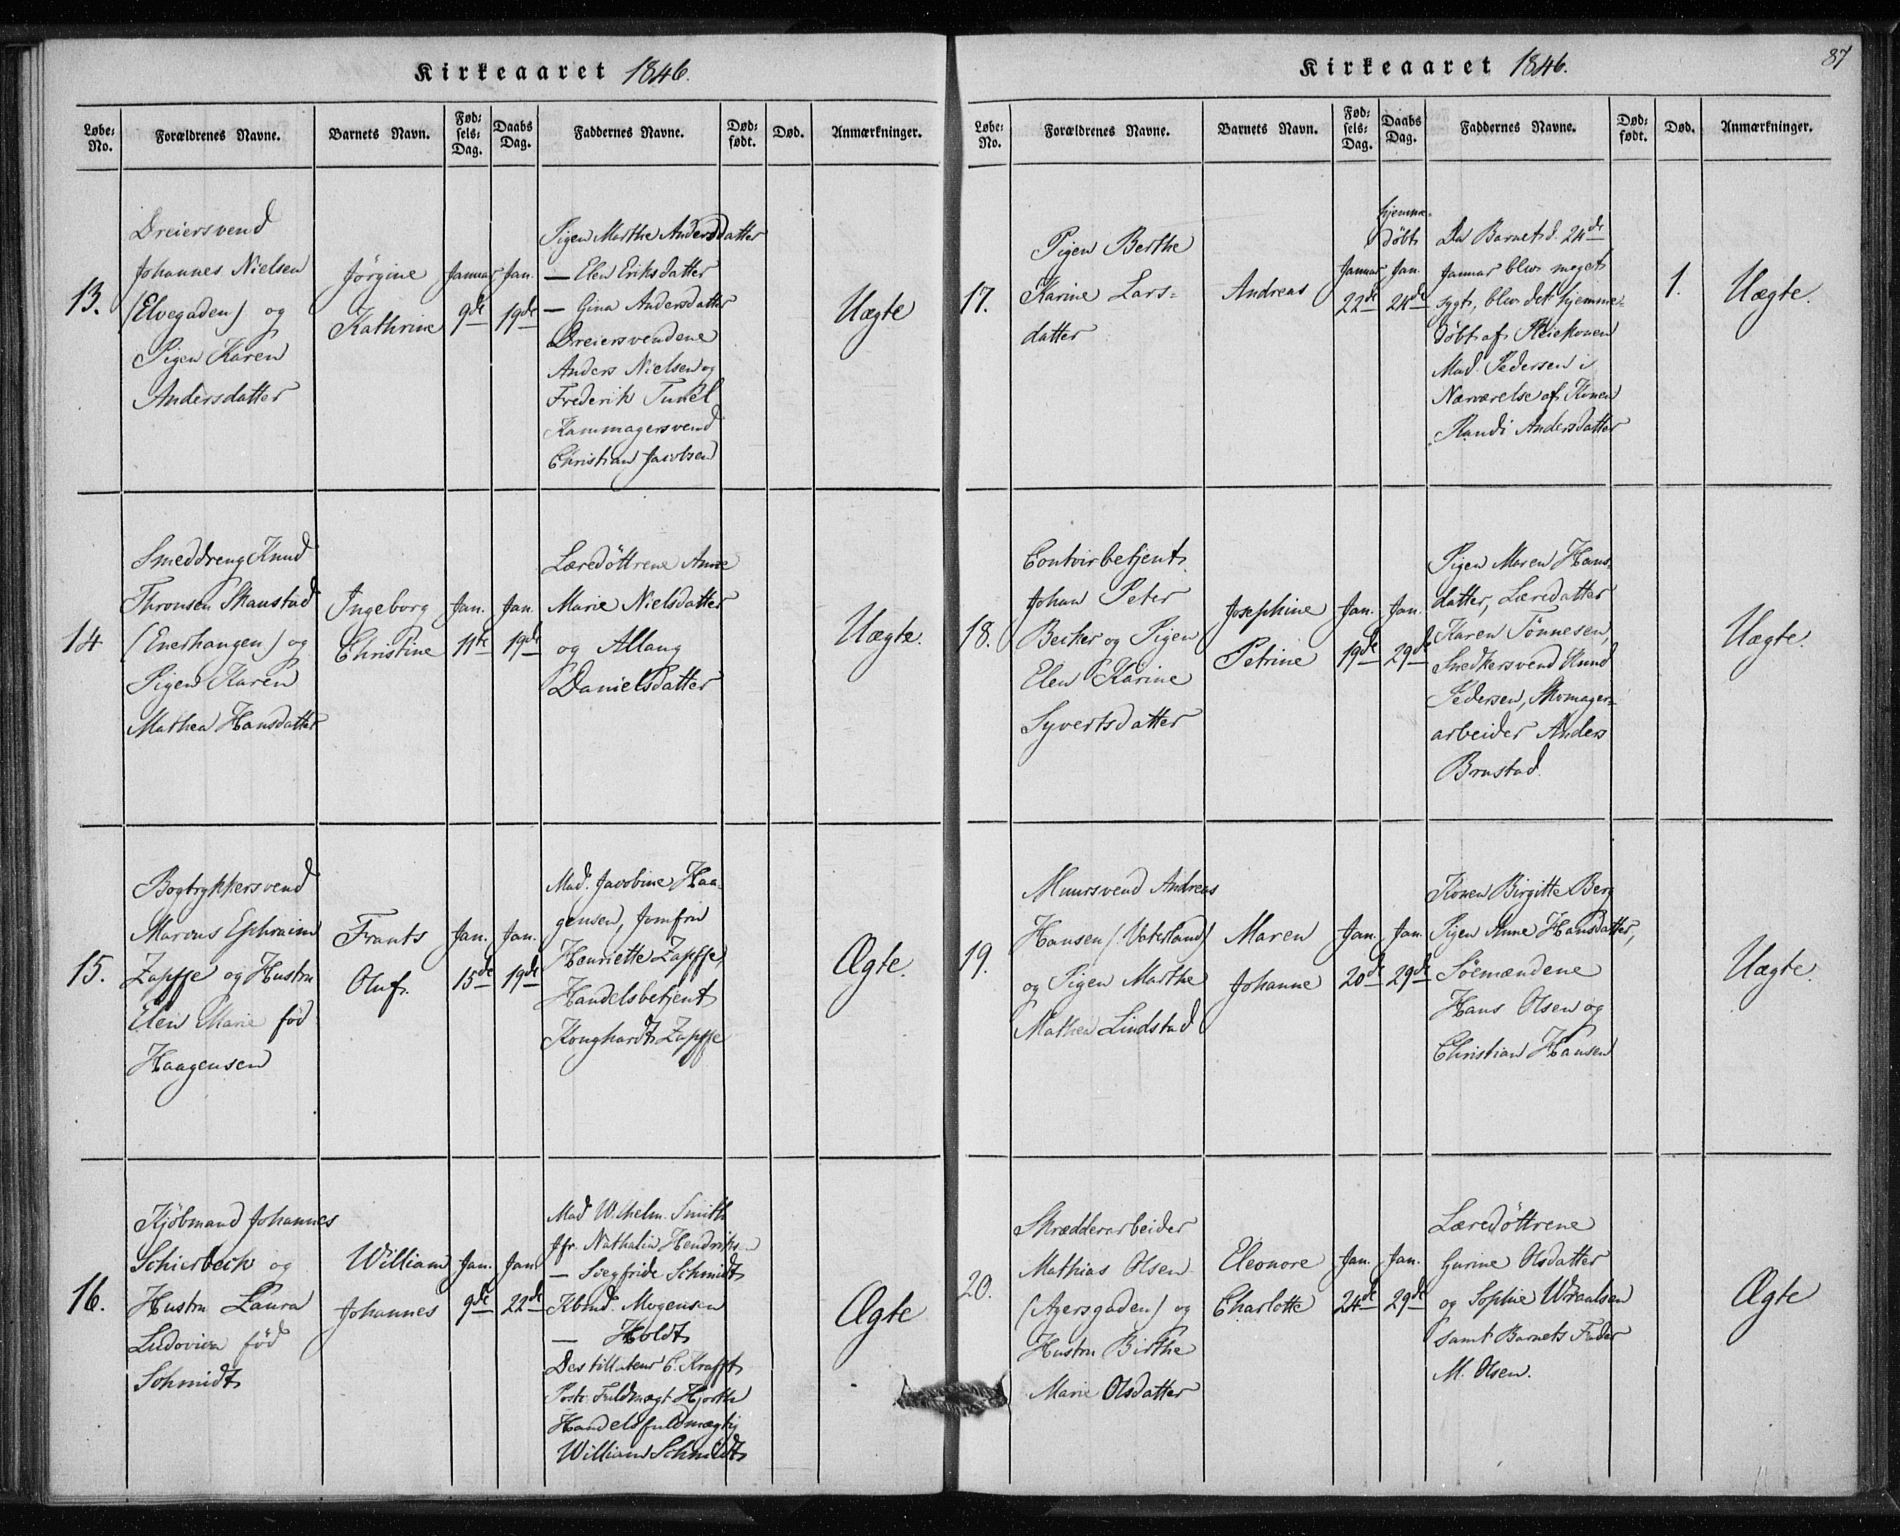 Kirkeaaret 1846.
Løbe-No.
Forældrenes Navne.
Barnets Navn.
Fød-sels-Dag.
Daabs Dag.
Faddernes Navne.
Død-født.
Død.
Anmærkninger.
13.
Dreiersvend
Johannes Nielsen
(Elvegaden) og
Pigen Karen
Andersdatter
Jörgine
Kathrine
Januar
9de
Jan.
19de
Pigen Marthe Andersdatter
— Elen Eriksdatter
— Gina Andersdatter
Dreiersvendene
Anders Nielsen og
Frederik Tunel
Kammagersvend
Christian Jacobsen
Uægte
14
Smeddreng Knud
Thronsen Skaustad
(Enerhaugen) og
Pigen Karen
Mathea Hansdatter
Ingeborg
Christine
Jan.
11te
Jan.
19de
Læredöttrene Anne
Marie Nielsdatter
og Allang
Danielsdatter
Uægte.
15.
Bogtrykkersvend
Marcus Ephraim
Zapffe og Hustru
Elen Marie fød
Haagensen
Frants
Oluf.
Jan.
15de
Jan.
19de
Mad. Jacobine Haa-
gensen, Jomfru
Henriette Zapffe,
Handelsbetjent
Konghardt Zapffe
Ægte.
16.
Kjöbmand Johannes
Schierbeck og
Hustru Laura
Ludovica fød
Schmidt
William
Johannes
Jan.
9de
Jan.
22de
Mad. Wilhelm. Smith
Jfr. Nathalia Hendriks-
— Siegfride Schmidt
Kbmd. Mogensen
— Holdt
Destillateur C. Krafft
Postr. Fuldmægt. Hjorth
Handelsfuldmægtig
William Schmidt
Ægte
Kirkeaaret 1846.
87
Løbe-No.
Forældrenes Navne.
Barnets Navn.
Fød-sels-Dag.
Daabs Dag.
Faddernes Navne.
Død-født.
Død.
Anmærkninger.
17.
Pigen Berthe
Karine Lars-
datter
Andreas
Januar
22de
hjemme-
döbt
Jan.
24de
Da Barnet d. 24de
Januar blev meget
sygt, blev det hjemme-
döbt af Pleiekonen
Mad. Pedersen i
Nærværelse af Konen
Randi Andersdatter
1.
Uægte.
18.
Contoirbetjent
Johan Peter
Becker og Pigen
Elen Karine
Syvertsdatter
Josephine
Petrine
Jan.
19de
Jan.
29de
Pigen Maren Hans-
datter, Læredatter
Karen Tönnesen,
Snedkersvend Knud
Pedersen, Skomager-
arbeider Anders
Brustad.
Uægte.
19.
Muursvend Andreas
Hansen (Vaterland)
og Pigen Marthe
Mathea Lindstad
Maren
Johanne
Jan.
20de
Jan.
29de
Konen Birgitte Berg
Pigen Anne Hansdatter,
Söemændene
Hans Olsen og
Christian Hansen
Uægte.
20.
Skrædderarbeider
Mathias Olsen
(Agersgaden) og
Hustru Birthe
Marie Olsdatter
Eleonore
Charlotte
Jan.
24de
Jan.
29de
Læredöttrene
Gurine Olsdatter
og Sophie Wraalsen
samt Barnets Fader
M. Olsen.
Ægte